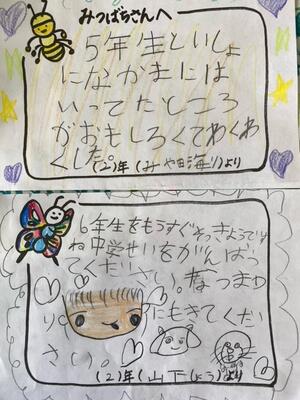 みつばちさんへ
5年生といしょ
になかまには
いってたところ
がおもしろくてわくわ
くした。
(2)年(みや田海り)より
6年生をもうすぐそつきょうです
ね中学せいをがんばっ
てくださいさい。夏つまつ
り。にもきてくだ
さい。
(2)年(山下しょう)より